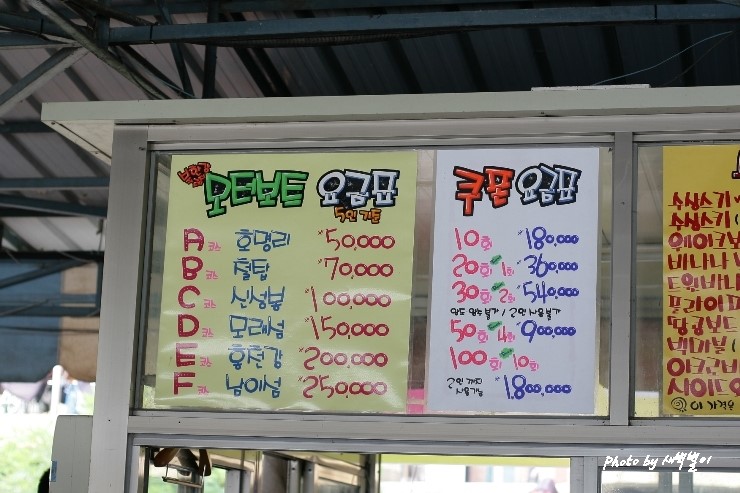 북한강
모터보트 요금표
5인 기준
A코스 호명리 ₩50,000
B코스 철탑 ₩70,000
C코스 신선봉 ₩100,000
D코스 모래섬 ₩150,000
E코스 홍천강 ₩200,000
F코스 남이섬 ₩250,000
쿠폰 요금표
10회 ₩180,000
20회 1회 ₩360,000
30회 2회 ₩540,000
50회 4회 ₩900,000
100회 10회
2인 까지 사용가능 ₩1,800,000
수상스키
수상스키
웨이크
바나나
플라이피
땅콩보트
사이드
이 가격은
Photo by 새벽별이